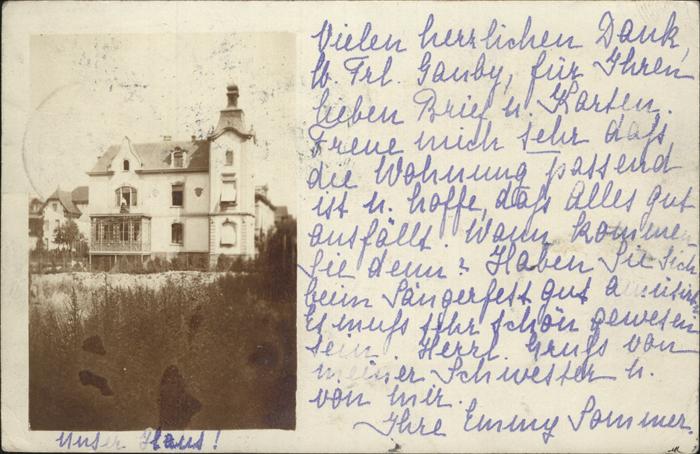 Vielen herzlichen Dank,
lb. Frl. Gauby, für Ihren
lieben Brief u. Karten.
Freue mich sehr daß
die Wohnung passend
ist u. hoffe, daß Alles gut
ausfällt. Wann kommen
Sie denn? Haben Sie sich
beim Sängerfest gut amüsirt
Es muß sehr schön gewesen
sein. Herzl. Gruß von
meiner Schwester u.
von mir.
Ihre Emmy Sommer.
Unser Haus!